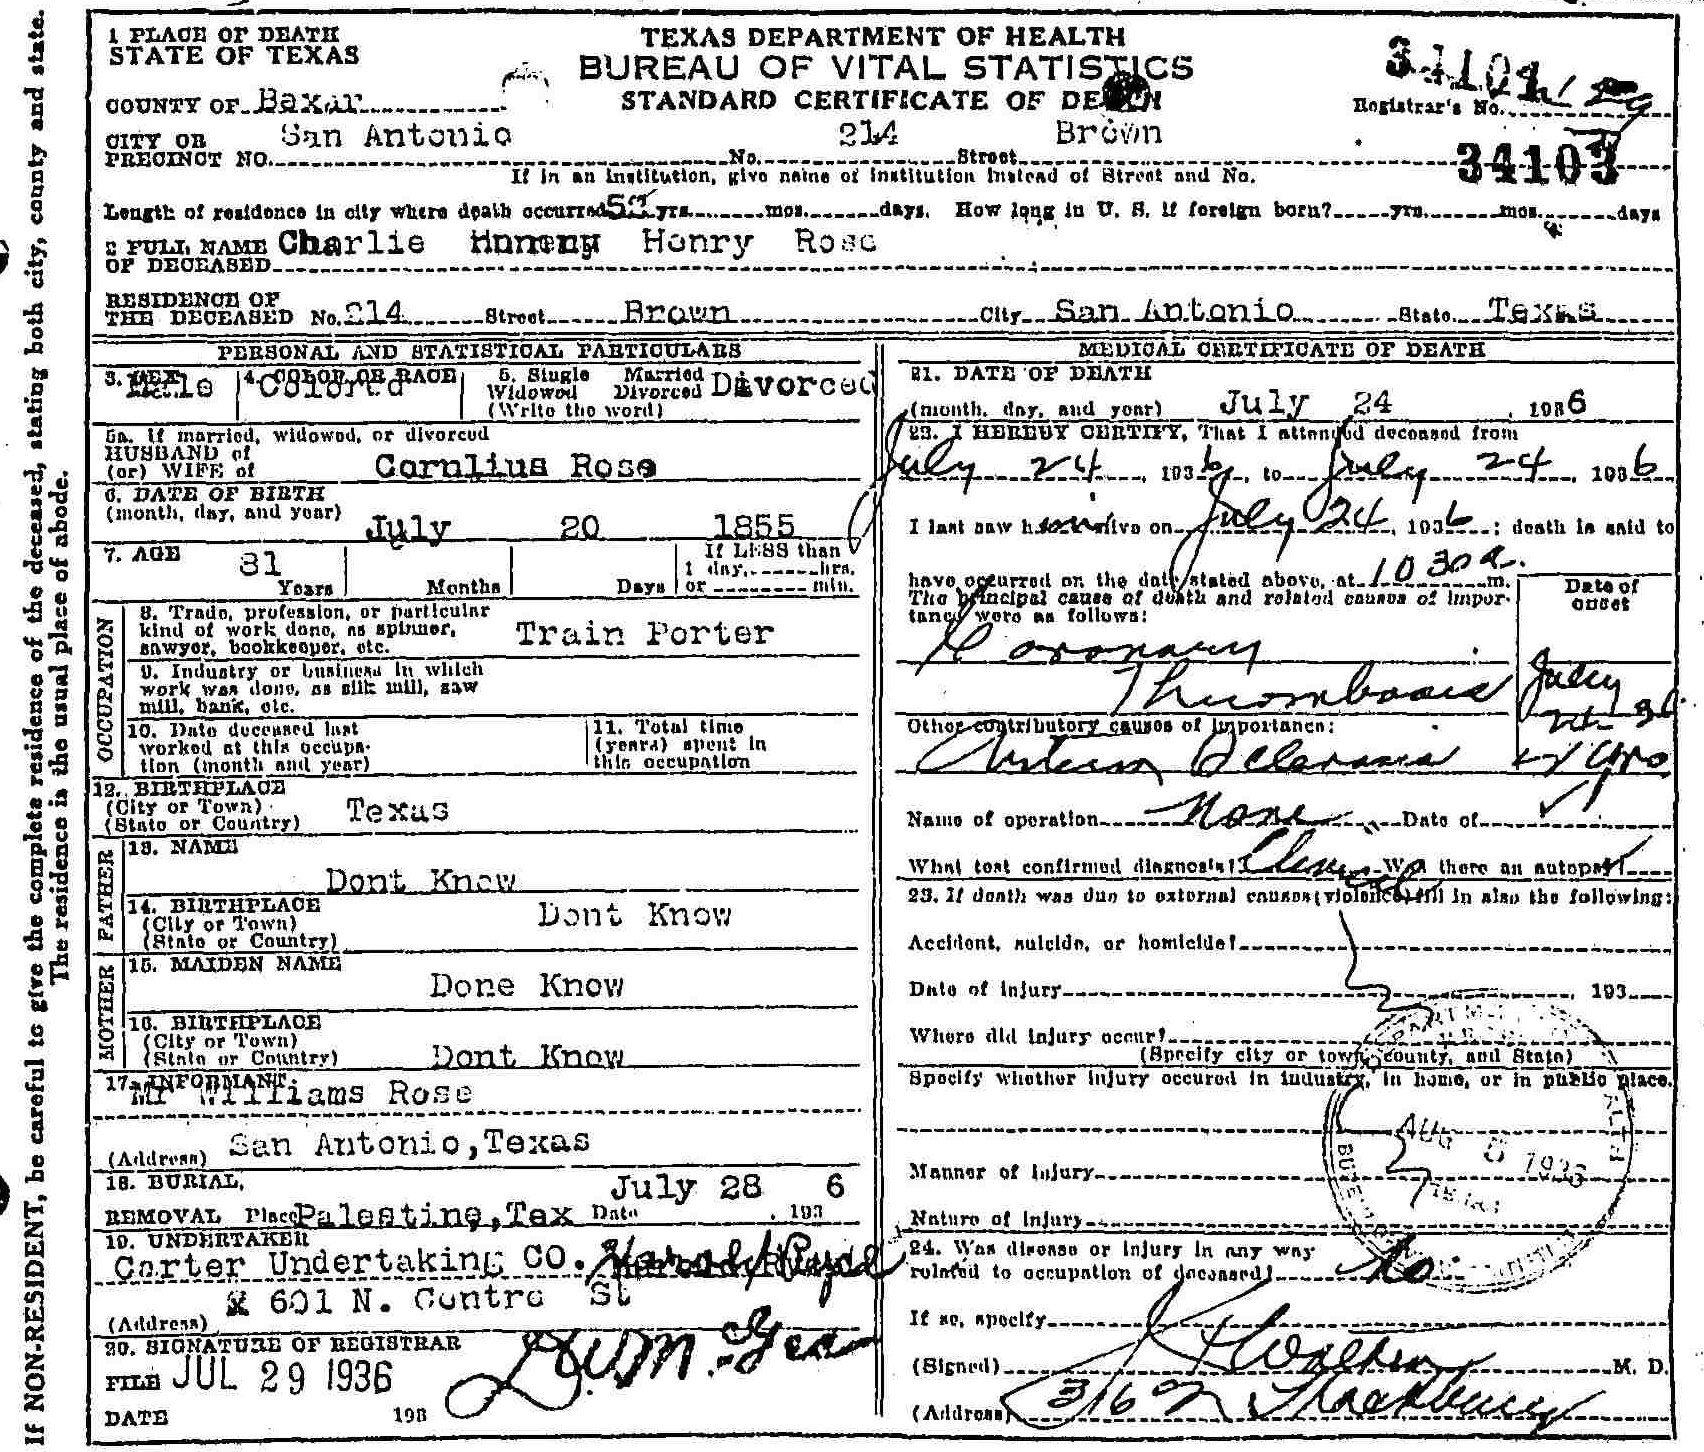 If NON-RESIDENT, be careful to give the complete residence of the deceased, stating both city, county and state.
The residence is the usual place of abode.
1 PLACE OF DEATH
STATE OF TEXAS
TEXAS DEPARTMENT OF HEALTH
BUREAU OF VITAL STATISTICS
STANDARD CERTIFICATE OF DEATH
COUNTY OF Baxar
Registrar's No.
CITY OR PRECINCT NO. San Antonio No. 214 Street Brown
34103
If in an institution, give name of institution instead of Street and No.
Length of residence in city where death occurred yrs. mos. days. How long in U. S. if foreign born? yrs. mos. days
2 FULL NAME OF DECEASED Charlie Henry Rose
RESIDENCE OF THE DECEASED No. 214 Street Brown City San Antonio State Texas
PERSONAL AND STATISTICAL PARTICULARS
3. SEX Male
4. COLOR OR RACE Colored
5. Single Married Widowed Divorced (Write the word) Divorced
5a. If married, widowed, or divorced
HUSBAND of
(or) WIFE of Cornlius Rose
6. DATE OF BIRTH
(month, day, and year) July 20 1855
7. AGE 81 Years Months Days If LESS than 1 day, hrs. or min.
OCCUPATION
8. Trade, profession, or particular
kind of work done, as spinner,
sawyer, bookkeeper, etc. Train Porter
9. Industry or business in which
work was done, as silk mill, saw
mill, bank, etc.
10. Date deceased last
worked at this occupa-
tion (month and year)
11. Total time
(years) spent in
this occupation
12. BIRTHPLACE
(City or Town)
(State or Country) Texas
FATHER
13. NAME Dont Know
14. BIRTHPLACE
(City or Town)
(State or Country) Dont Know
MOTHER
15. MAIDEN NAME Done Know
16. BIRTHPLACE
(City or Town)
(State or Country) Dont Know
17. INFORMANT Mr Williams Rose
(Address) San Antonio,Texas
18. BURIAL,
REMOVAL Place Palestine,Tex Date July 28 193 6
19. UNDERTAKER
Carter Undertaking CO.
(Address) 601 N. Centre St
20. SIGNATURE OF REGISTRAR
FILE DATE JUL 29 1936
193
MEDICAL CERTIFICATE OF DEATH
21. DATE OF DEATH
(month, day, and year) July 24 1936
22. I HEREBY CERTIFY, That I attended deceased from
July 24, 1936, to July 24, 1936
I last saw him alive on July 24, 1936; death is said to
have occurred on the date stated above, at 10 30 a. m.
The principal cause of death and related causes of impor-
tance were as follows:
Date of onset
Coronary
Thrombosis
July
Other contributory causes of importance:
Name of operation None Date of
What test confirmed diagnosis? Clinical Was there an autopsy?
23. If death was due to external causes (violence) fill in also the following:
Accident, suicide, or homicide?
Date of injury 193
Where did injury occur?
(Specify city or town, county, and State)
Specify whether injury occured in industry, in home, or in public place.
Manner of injury
Nature of injury
AUG 5 1936
24. Was disease or injury in any way
related to occupation of deceased? No
If so, specify
(Signed) M. D.
(Address) 316